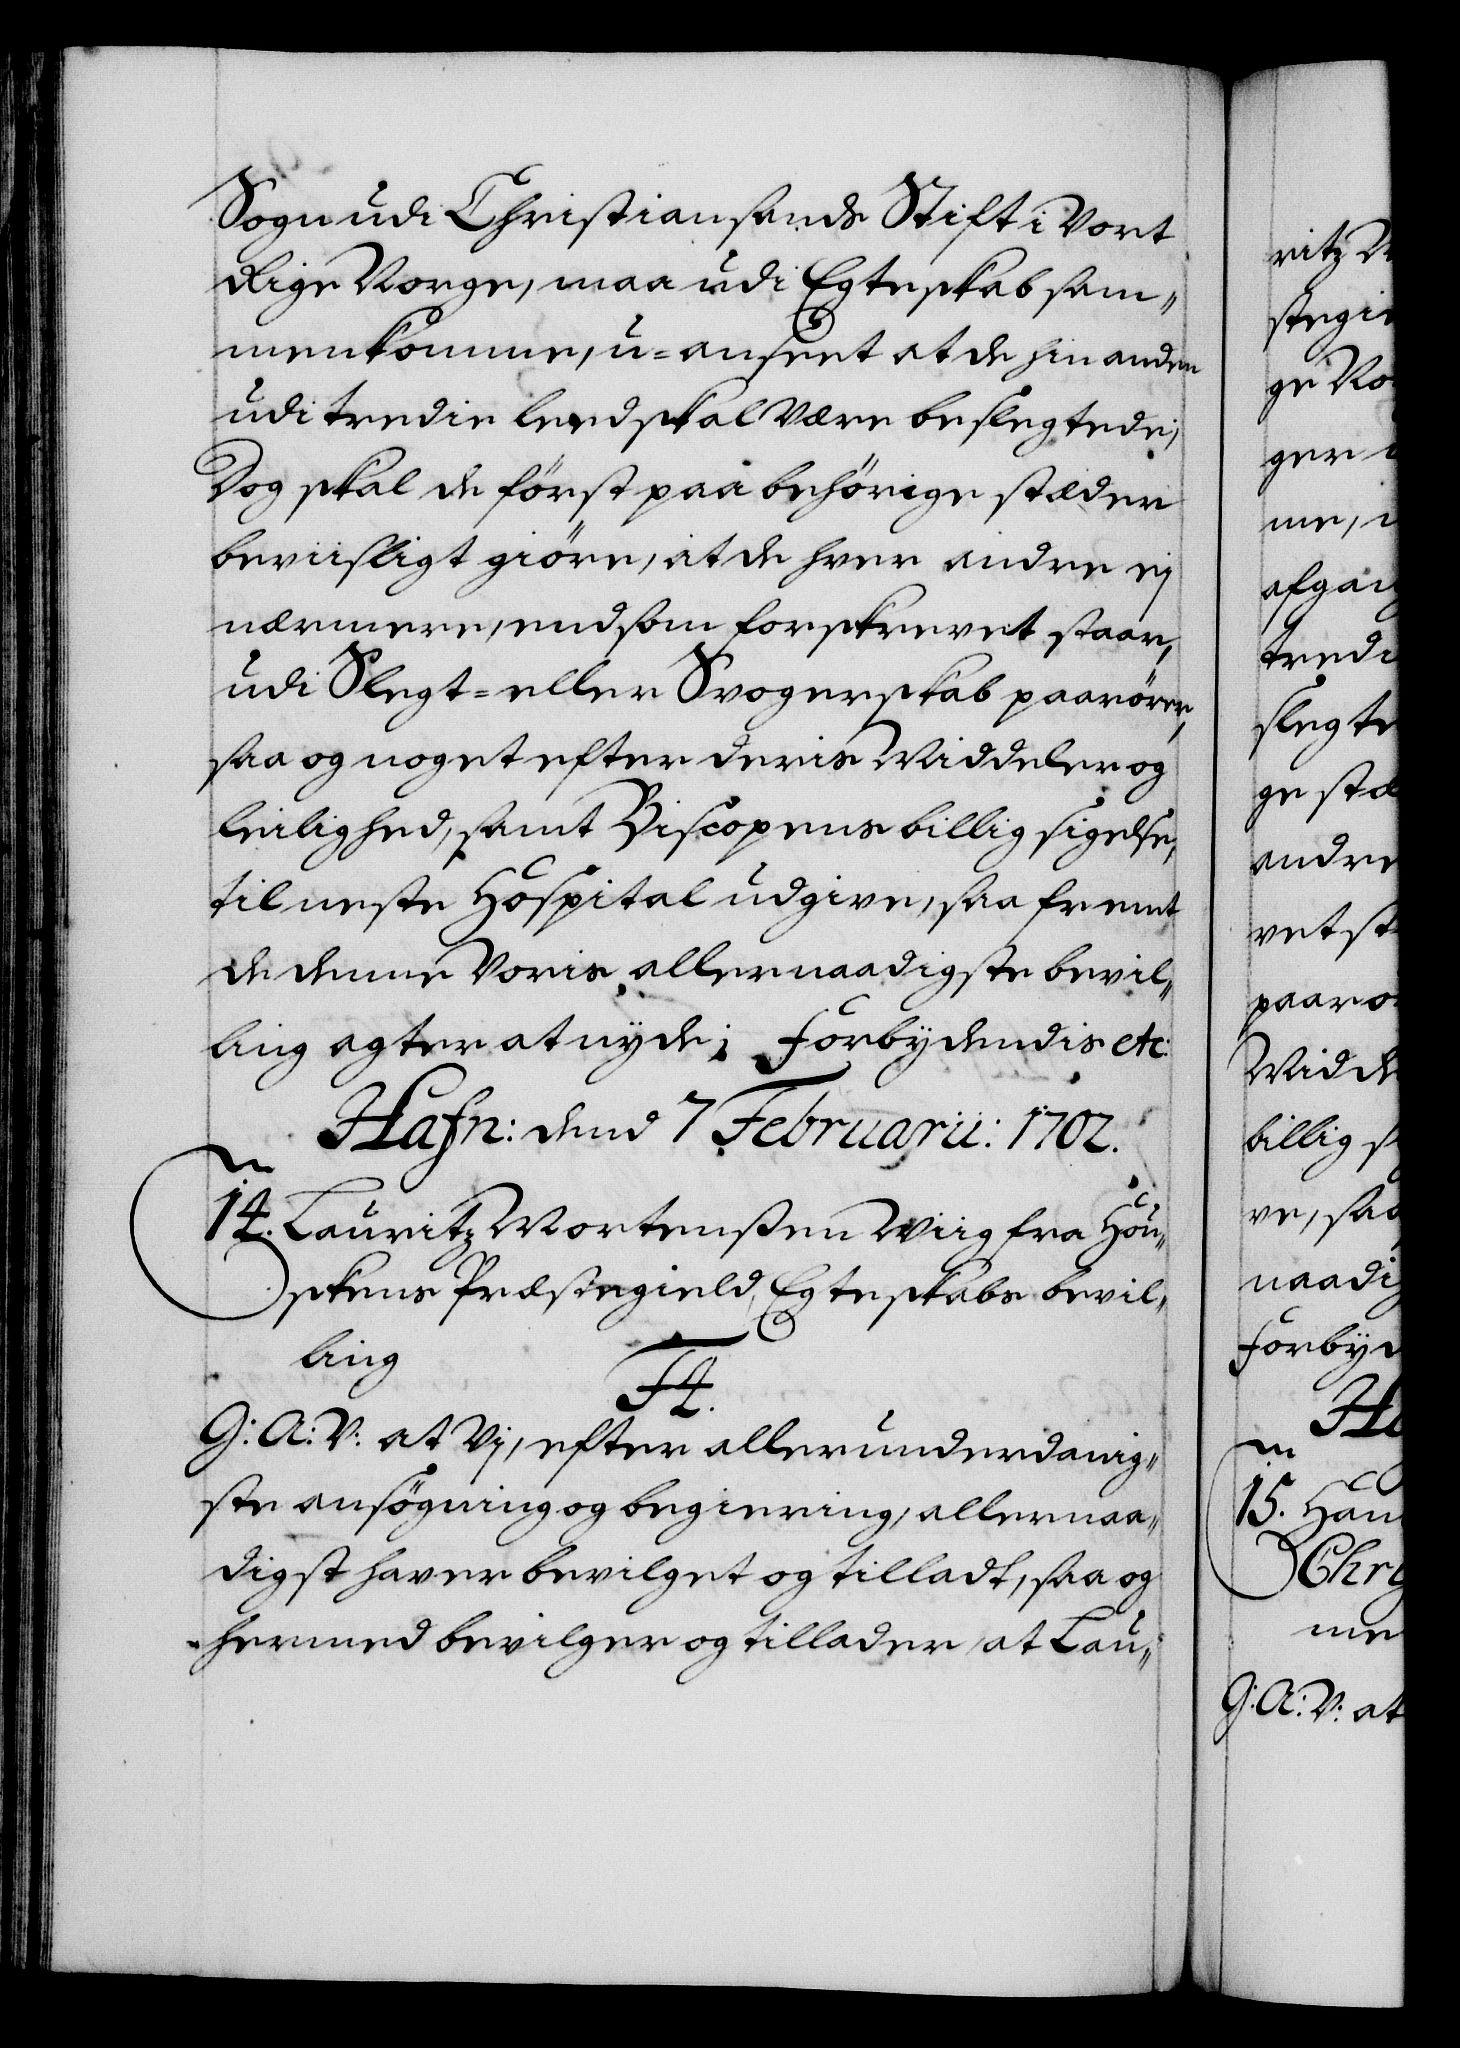 Sogn udi Christiansands Stift i Vort
Rige Norge, maa udi Egteskab sam„
menkomme, u=anseet at de hin anden
udi tredie leed skal være beslegtede,
Dog skal de först paa behörige stæder
beviisligt giöre, at de hver andre ej
nærmere, end som forskrevet staar,
udi Slegt= eller Svogerskab paarörer,
saa og noget efter deris Middeler og
leilighed, samt Biscopens billig sigelse,
til neste Hospital udgive, saa fremt
de denne Voris allernaadigste bevil„
ling agter at nyde; Forbydendis etc:
Hafn: dend 7 Februarii: 1702.
14. Lauritz Mortenßen Wiig fra Hou„
skens Præstegield, Egteskabs bevil„
ling
F4.
G: A: V: at Vj, efter allerunderdanig„
ste ansögning og begiering, allernaa„
digst haver bevilget og tilladt, saa og
hermed bevilger og tillader, at Lau„
ritz M
stegie
ge No
ger
me,
afgang
tredi
slegte
ge stæ
andre
vet st
paarö
Midde
billig s
ve, saa
naadig
Forbyd
Ha
15. Han
Chri
me
G: A: V: at